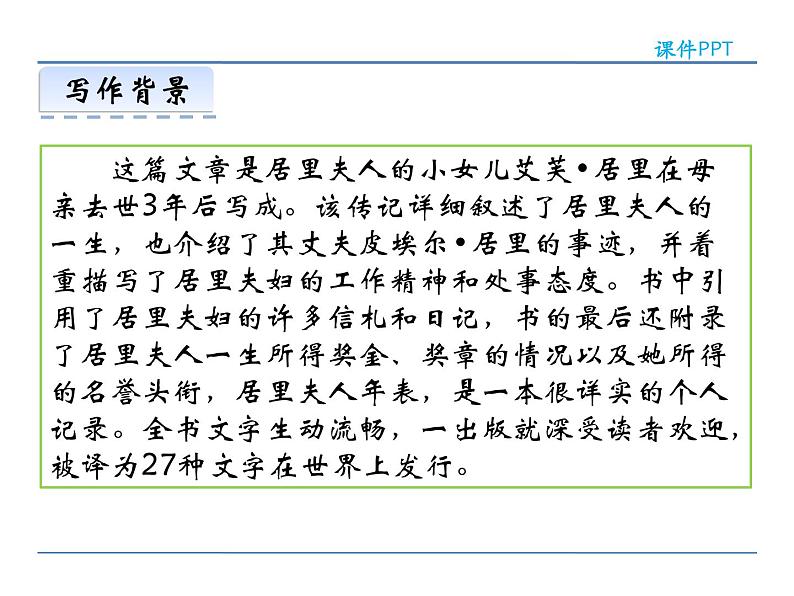 课件PPT
写作背景
这篇文章是居里夫人的小女儿艾芙•居里在母
亲去世3年后写成。该传记详细叙述了居里夫人的
一生，也介绍了其丈夫皮埃尔•居里的事迹，并着
重描写了居里夫妇的工作精神和处事态度。书中引
用了居里夫妇的许多信札和日记，书的最后还附录
了居里夫人一生所得奖金、奖章的情况以及她所得
的名誉头衔，居里夫人年表，是一本很详实的个人
记录。全书文字生动流畅，一出版就深受读者欢迎，
被译为27种文字在世界上发行。